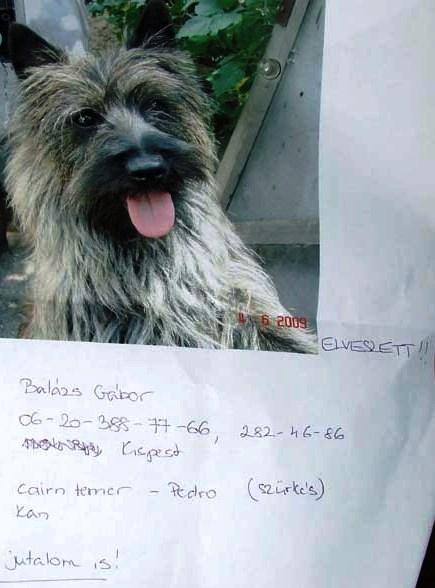 4 6 2009
ELVESZETT!!
Balázs Gábor
06-20-388-77-66, 282-46-86
Kispest
cairn terrier - Pedro (szürkés)
kan
jutalom is!